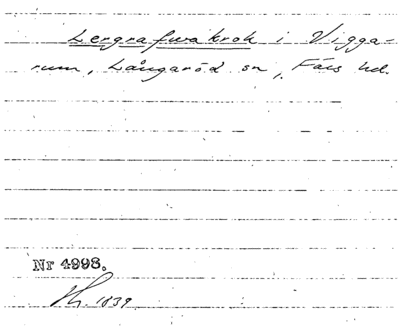 Lergrafwakrok i Vigga-
rum, Långaröd sn, Färs hd.
Nr 4998.
1839